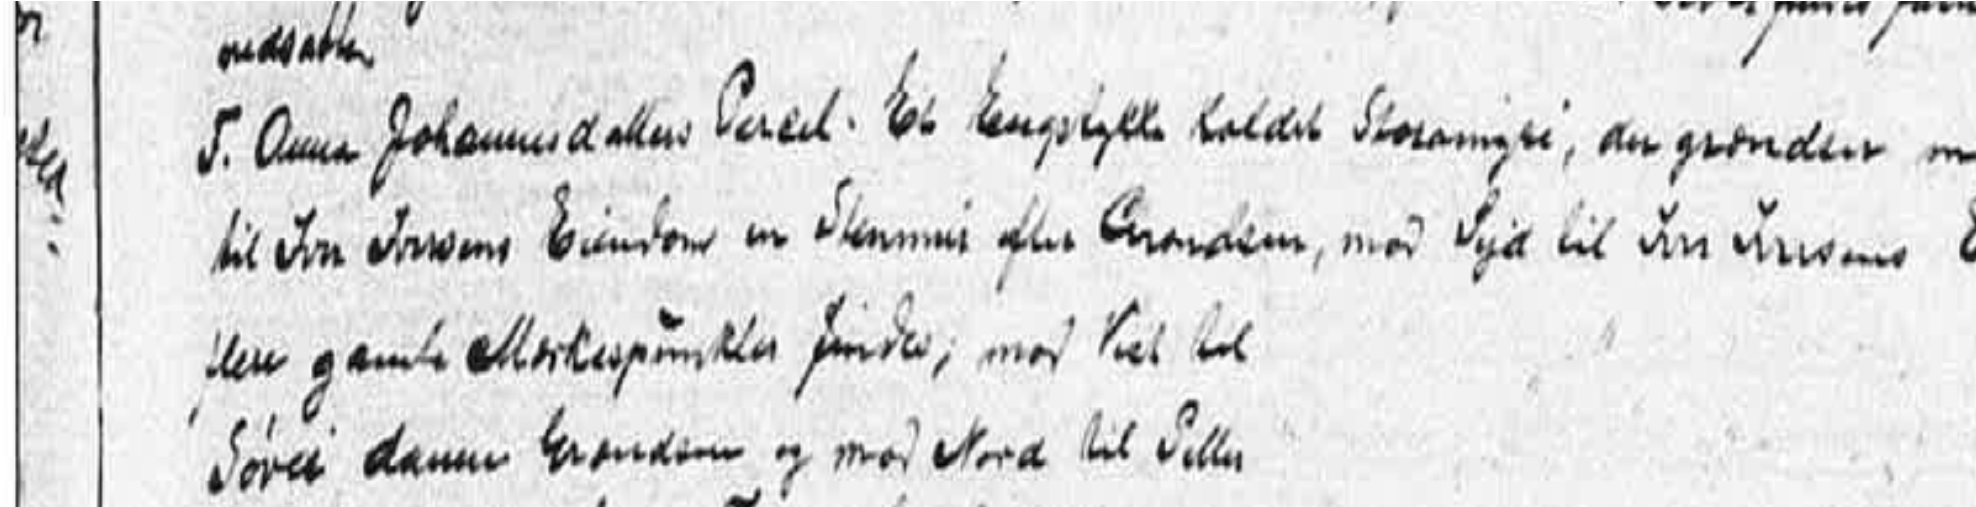 nedsatte
5. Anna Johannesdatters Parcel. Et Engstykke kaldet Storamyri, der grændser
til Iver Iversens Eiendom en Stenmur efter Grændsen, mod Syd til Iver Iversens
flere gamle Mærkespunkter findes; mod Vest til
danner Grændsen og mod Nord til Peller